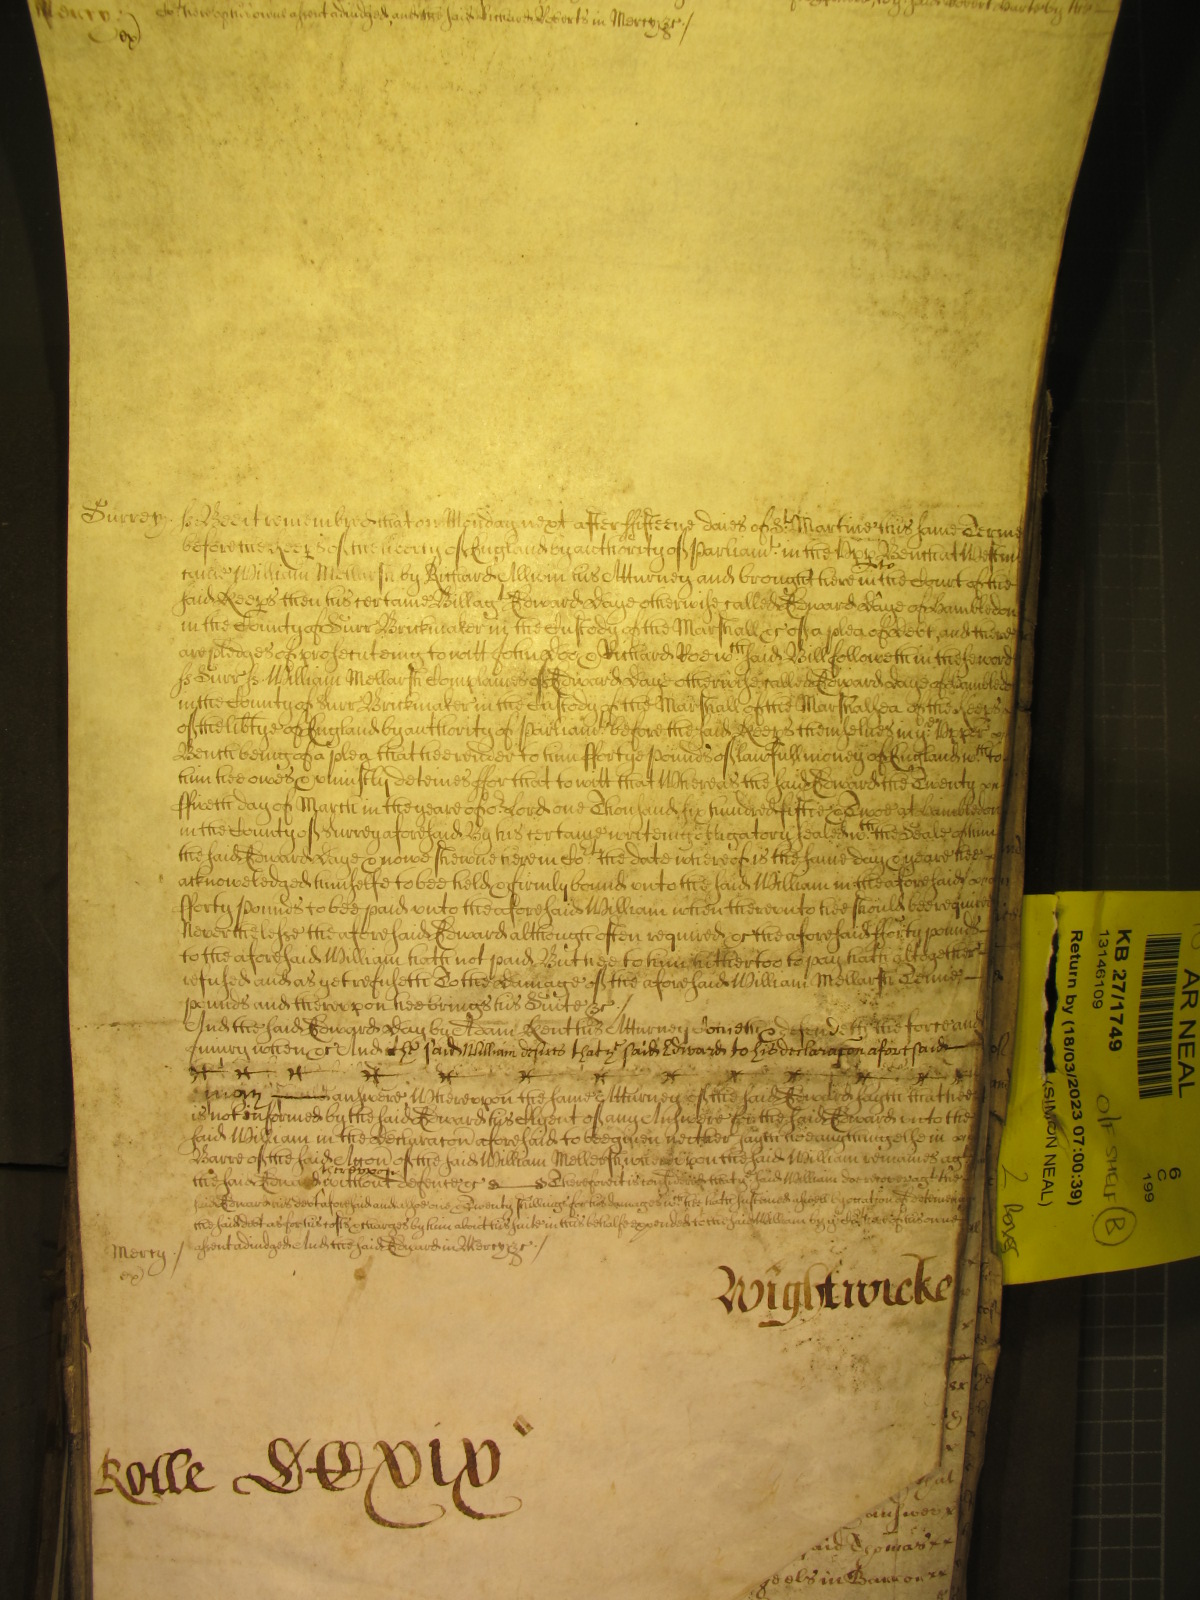 to theire owne assent adiudged, and the said Richard Roberts in Mercy &c /
Surrey. ss Bee it remembred that on Monday next after fifteene daies of St. Martine this same Terme
before the Keeps of the liberty of England by authority of Parliamt. in the Vpp Bench at Westm
came William Mellarsh by Richard Allwin his Atturney and brought here into the Court of the
said Keeps then his certaine Bill agt Edward Daye otherwise called Edward Daye of Wimbledon
in the County of Surr Brickmaker in the Custody of the Marshall &c of a plea of debt, and there
are pledges of prosecuteing to witt John Doe & Richard Roe wch said Bill followeth in these words
ss Surr ss William Mellarsh Complaines of Edward Daye otherwise called Edward Daye of Wimbledon
in the County of Surr Brickmaker in the Custody of the Marshall of the Marshallsea of the Keeps
of the libtye of England by authority of Parliamt before the said Keeps themselues in ye Vpper
Bench being of a plea that hee render to him ffortye Pounds of lawfull money of England wch to
him hee owes & uniustly deteines ffor that to witt that Whereas the said Edward the Twenty
ffiueth day of March in the yeare of or. Lord one Thousand six hundred fiftie & Twoe at Wimbledon
in the County of Surrey aforesaid By his certaine writeing obligatory sealed wth the Seale of him
the said Edward Daye & nowe shewne here in Cort the date whereof is the same day & yeare hee
acknowledged himselfe to bee held & firmly bound vnto the said William in the aforesaid
fforty Pounds to bee paid vnto the aforesaid William when therevnto hee should bee required
Neverthelesse the aforesaid Edward although often required &c the aforesaid fforty pounds
to the aforesaid William hath not paid But hee to him hithertoo to pay hath altogether
refused and as yet refuseth To the damage of the aforesaid William Mellarsh Tenne
pounds and thereupon hee brings his Suite &c /
And the said Edward Day by Adam Kent his Atturney Cometh & defendeth the force and
iniury when &c And the said William desires that ye said Edward to his declaracon aforesaid
may answere Whereupon the same Atturney of the said Edward sayth that hee
is not informed by the said Edward his Clyent of any Answere for the said Edward vnto the
said William in the declaracon aforesaid to bee given neither sayth hee any thing else in
Barre of the said Accon of the said William Mellersh whereupon the said William remaines agt
the said Edward thereupon without defence &c Therefore it is considered that ye said William doe recover agt the
said Edward his debt aforesaid and alsoe one & Twenty shillings for his damages wch hee hath susteined aswell by occasion of deteineing
the said debt as for his costs & charges by him about his suite in this behalfe expended to the said William by ye Court of his owne
Mercy / assent adiudged And the said Edward in Mercy &c /
ex
Wightwicke
Rolle DCxix
that
answere
said Thomas
geols in Barr
AR NEAL
KB 27/1749
13146109
Return by (18/03/2023 07:00:39)
(SIMON NEAL)
6
C
199
O/F SHELF B
2 boxes